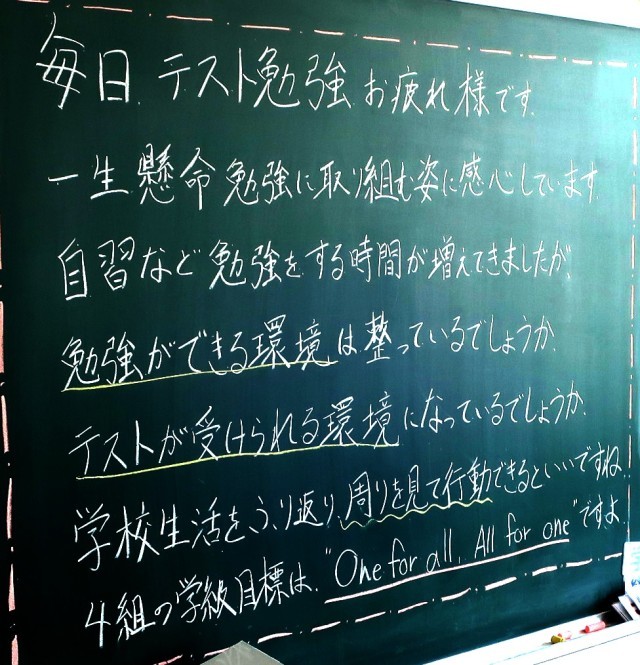 毎日 テスト勉強 お疲れ様です.
一生懸命勉強に取り組む姿に感心しています.
自習など勉強をする時間が増えてきましたが、
勉強ができる環境は整っているでしょうか.
テストが受けられる環境になっているでしょうか.
学校生活をふり返り、周りを見て行動できるといいですね
4組の学級目標は、"One for all, All for one"ですよ